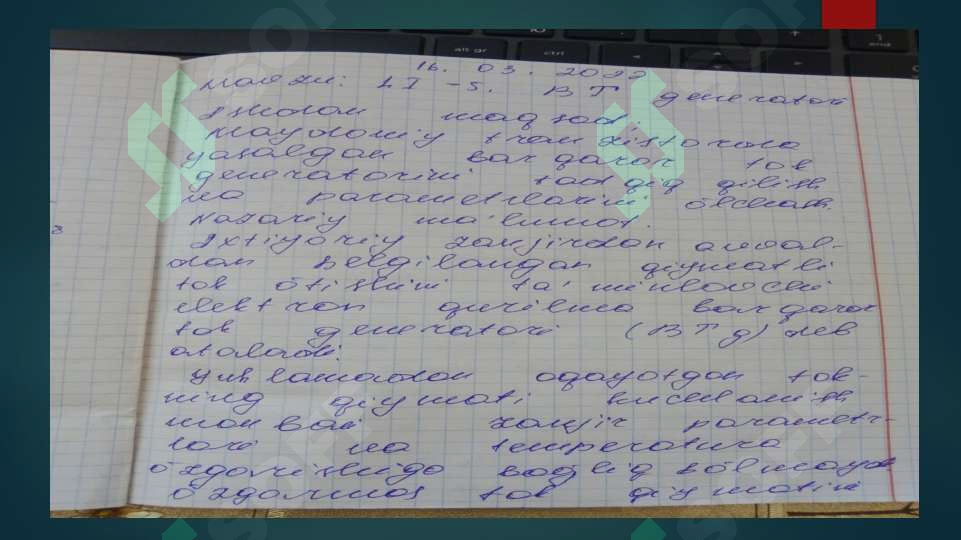 16. 03. 2022
Mavzu: LI-5. BT generatori
Ishdan maqsad:
Maydoniy tranzistorda
yasalgan barqaror tok
generatorini tadqiq qilish
va parametrlarini o'lchash.
Nazariy ma'lumot.
Ixtiyoriy zanjirdan avval-
dan belgilangan qiymatli
tok o'tishini ta'minlovchi
elektron qurilma barqaror
tok generatori (BTg) deb
ataladi.
Yuklamadan oqayotgan tok-
ning qiymati kuchlanish
manbai zanjir parametr-
lari va temperatura
o'zgarishiga bog'liq bo'lmay
o'zgarmas tok qiymatini